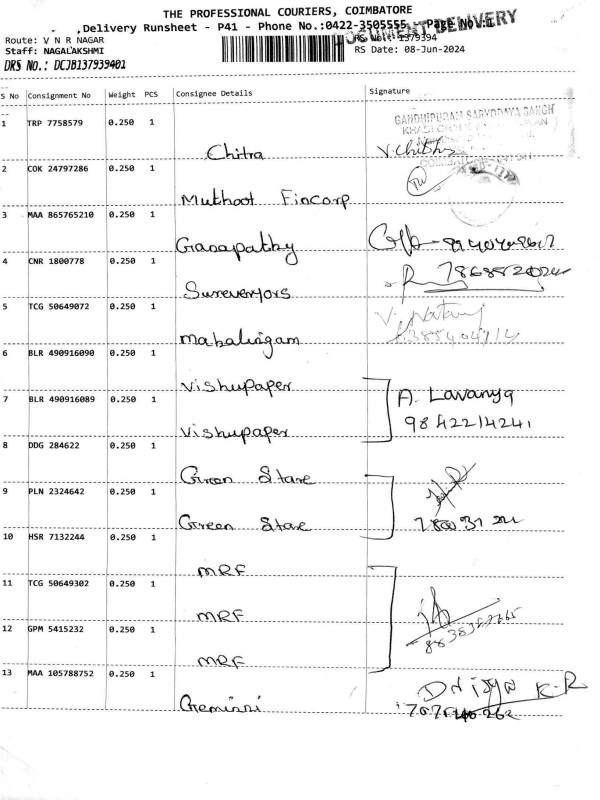 THE PROFESSIONAL COURIERS, COIMBATORE
Delivery Runsheet - P41 - Phone No.:0422-3505555 Page No.:1
DOCUMENT DELIVERY
Route: V N R NAGAR
RS No.: 1379394
Staff: NAGALAKSHMI
RS Date: 08-Jun-2024
DRS NO.: DCJB137939401
S No Consignment No Weight PCS Consignee Details Signature
1 TRP 7758579 0.250 1
GANDHIPURAM SARVODAYA SANGH
Chitra V. Chithra
2 COK 24797286 0.250 1
Muthoot Fincorp
3 MAA 865765210 0.250 1
Ganapathy
4 CNR 1800778 0.250 1
Sureveryors
5 TCG 50649072 0.250 1
Mahalingam
6 BLR 490916090 0.250 1
Vishupaper
7 BLR 490916089 0.250 1 A. Lavanya
Vishupaper 9842214241
8 DDG 284622 0.250 1
Green Stare
9 PLN 2324642 0.250 1
Green Stare
10 HSR 7132244 0.250 1
MRF
11 TCG 50649302 0.250 1
MRF
12 GPM 5415232 0.250 1
MRF
13 MAA 105788752 0.250 1
Gemini K.R